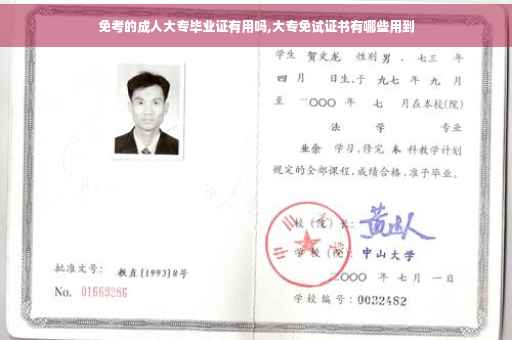 免考的成人大专毕业证有用吗,大专免试证书有哪些用到
学生 贺文龙 性别 男 、七三 年
四 月 日生,于 九七 年 九 月
至 二〇〇〇 年 七 月在本校(院)
法 学 专业
业余 学习,修完 本 科教学计划
规定的全部课程,成绩合格,准予毕业。
校(院)长:
学校(院):中山大学
二〇〇〇 年 七 月 一日
学校编号:0032482
批准文号:教直[1993]8号
No. 01669286